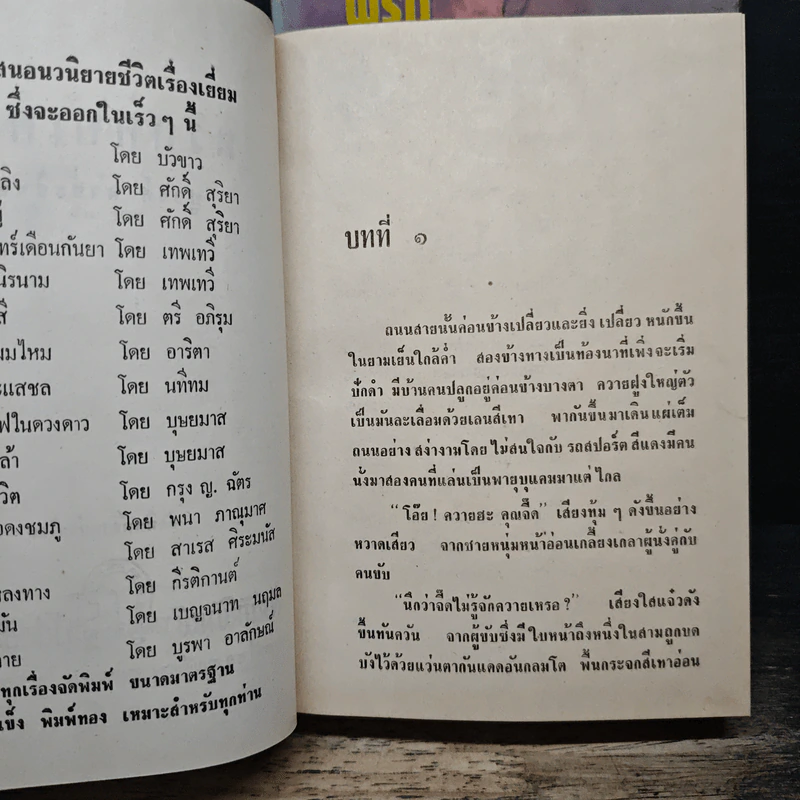 สนอนวนิยายชีวิตเรื่องเยี่ยม
ซึ่งจะออกในเร็ว ๆ นี้
โดย บัวขาว
ลิง โดย ศักดิ์ สุริยา
โดย ศักดิ์ สุริยา
ทร์เดือนกันยา โดย เทพเทวี
นิรนาม โดย เทพเทวี
สี โดย ตรี อภิรุม
มไหม โดย อาริตา
ะแสชล โดย นทีทม
ฟในดวงดาว โดย บุษยมาส
ล้า โดย บุษยมาส
วิต โดย กรุง ญ. ฉัตร
อดงชมภู โดย พนา ภาณุมาศ
โดย สาเรส ศิระมนัส
หลงทาง โดย กีรติกานต์
มัน โดย เบญจนาท นฤมล
าย โดย บูรพา อาลักษณ์
ทุกเรื่องจัดพิมพ์ ขนาดมาตรฐาน
แข็ง พิมพ์ทอง เหมาะสำหรับทุกท่าน
บทที่ ๑
ถนนสายนั้นค่อนข้างเปลี่ยวและยิ่ง เปลี่ยว หนักขึ้น
ในยามเย็นใกล้ค่ำ สองข้างทางเป็นท้องนาที่เพิ่งจะเริ่ม
ปักดำ มีบ้านคนปลูกอยู่ค่อนข้างบางตา ควายฝูงใหญ่ตัว
เป็นมันละเลื่อมด้วยเลนสีเทา พากันขึ้นมาเดินแผ่เต็ม
ถนนอย่าง สง่างามโดย ไม่สนใจกับ รถสปอร์ต สีแดงมีคน
นั่งมาสองคนที่แล่นเป็นพายุบุแคมมาแต่ ไกล
“โอ๊ย! ควายฮะ คุณจี๊ด” เสียงทุ้ม ๆ ดังขึ้นอย่าง
หวาดเสียว จากชายหนุ่มหน้าอ่อนเกลี้ยงเกลาผู้นั่งคู่กับ
คนขับ
“นึกว่าจี๊ดไม่รู้จักควายเหรอ?” เสียงใสแจ๋วดัง
ขึ้นทันควัน จากผู้ขับซึ่งมี ใบหน้าถึงหนึ่งในสามถูกบด
บังไว้ด้วยแว่นตากันแดดอันกลมโต พื้นกระจกสีเทาอ่อน